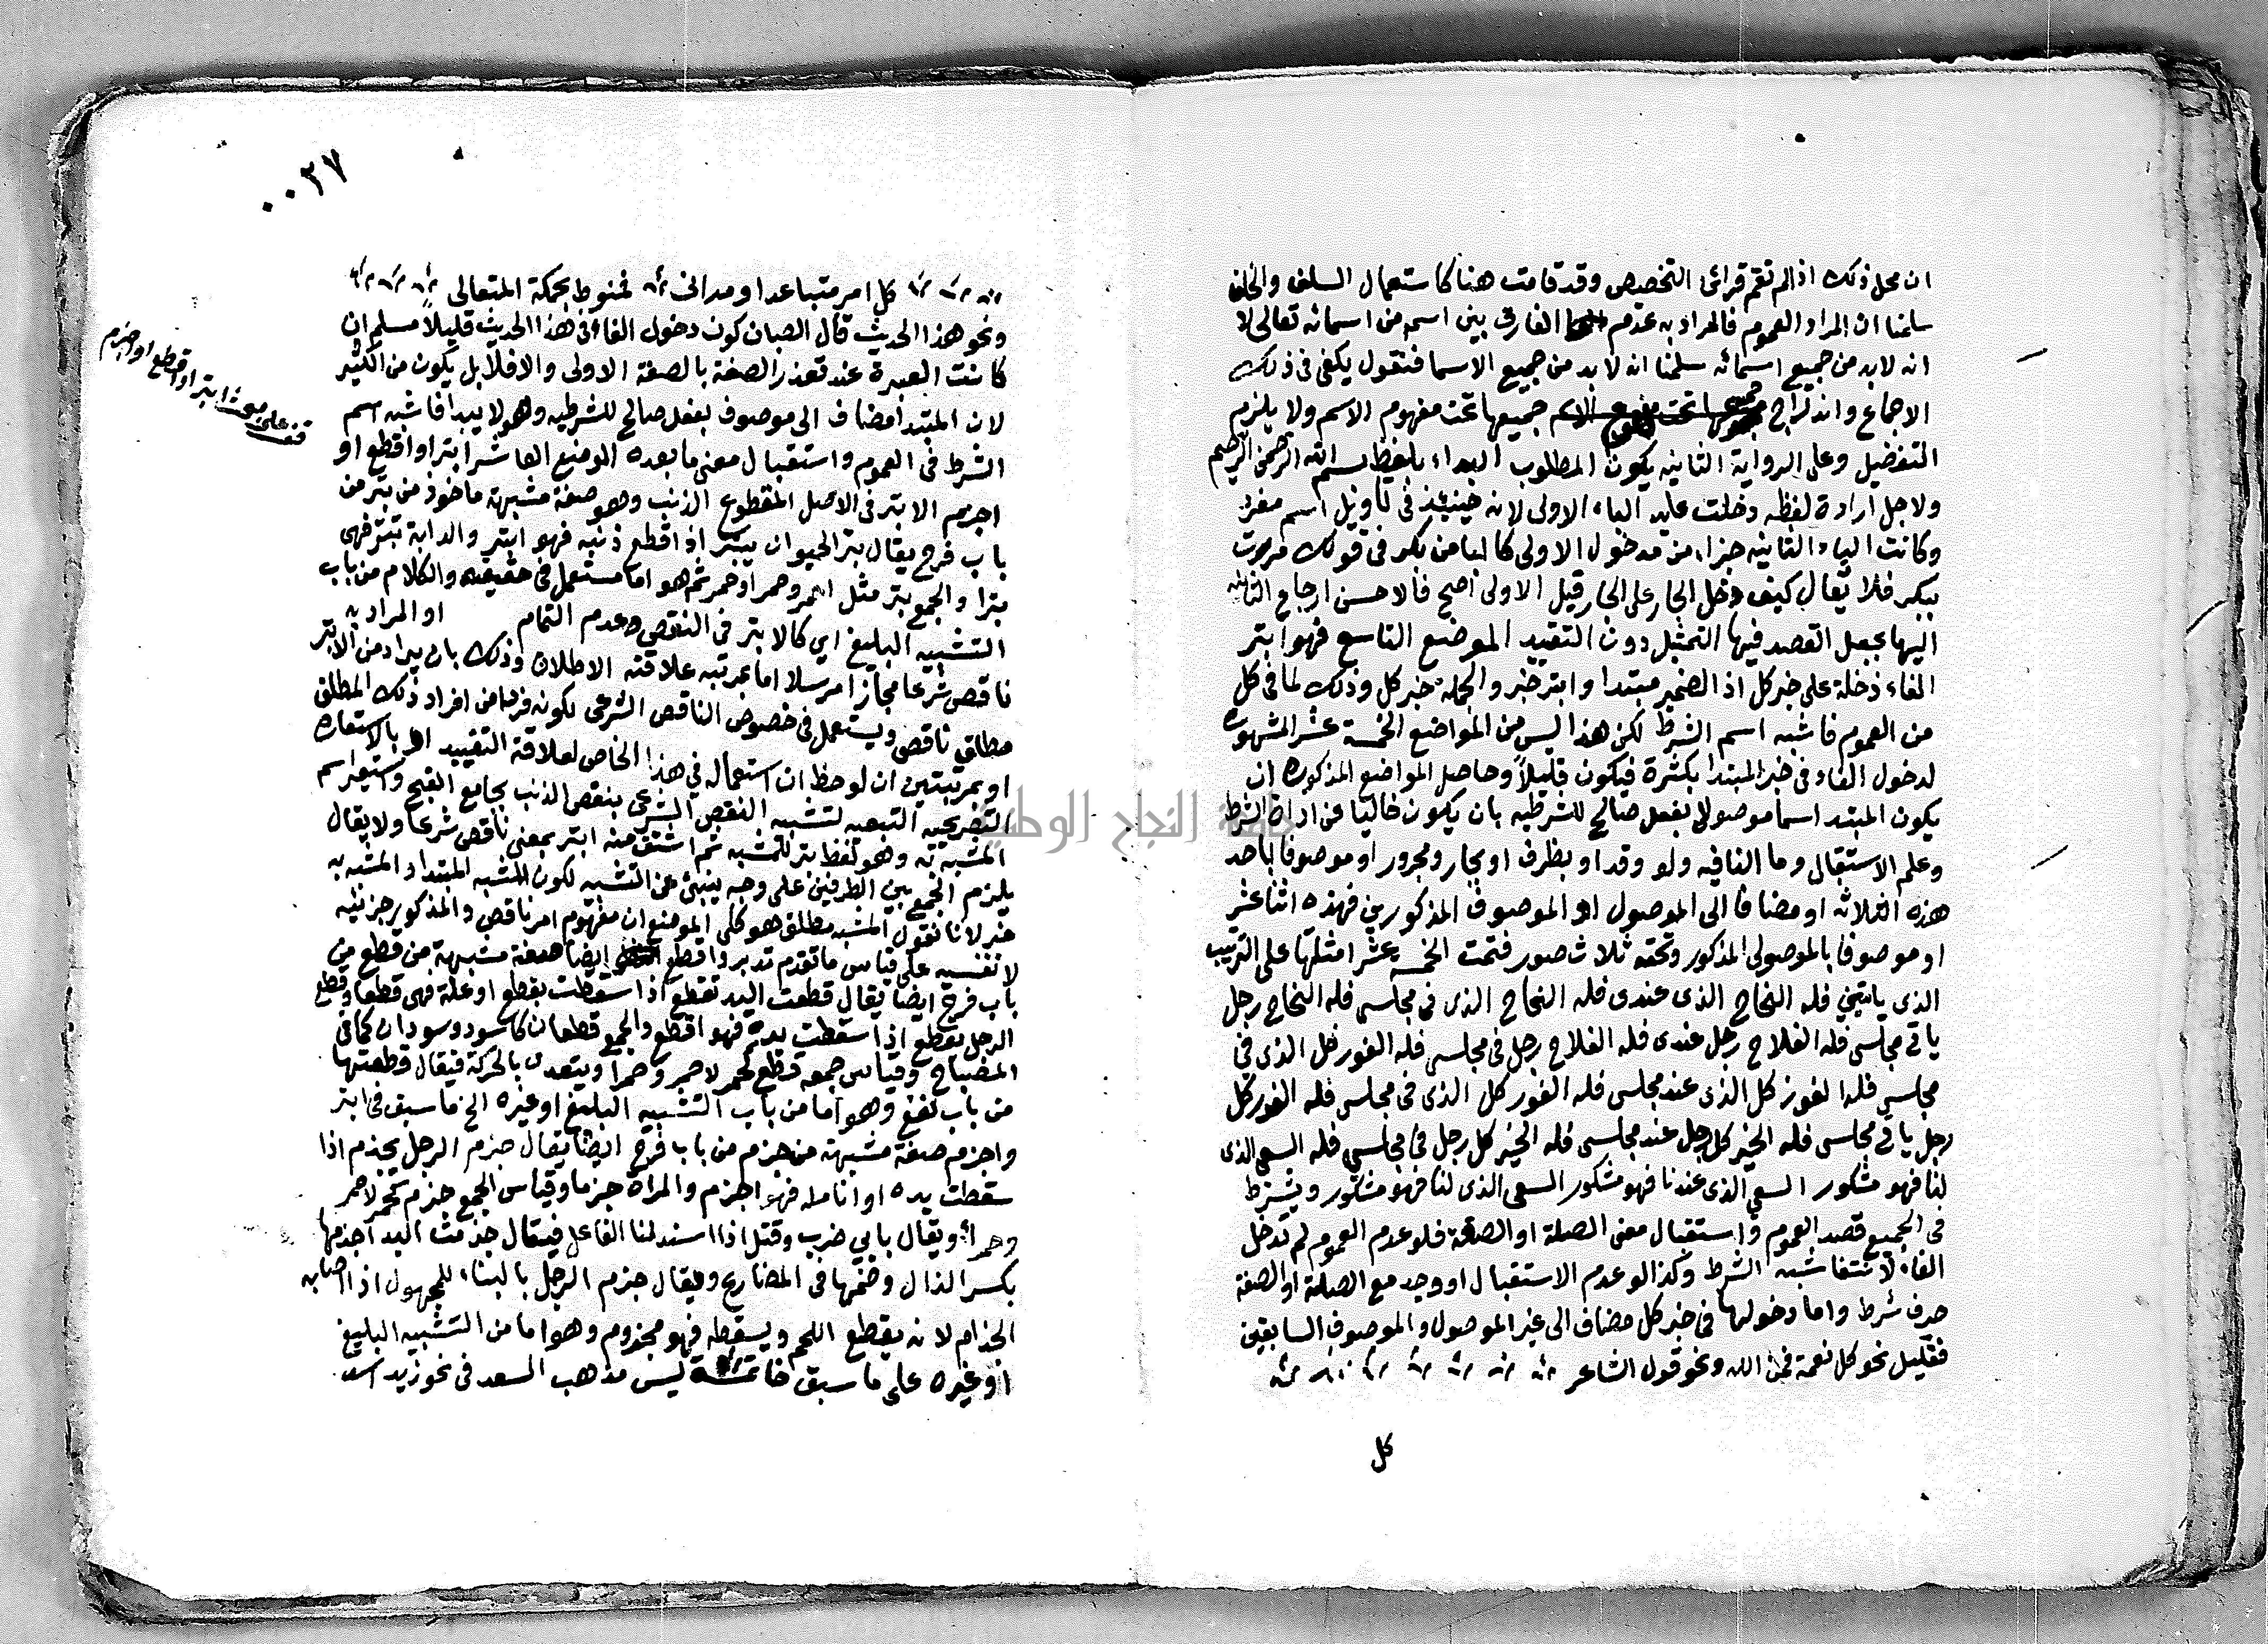 ان محل ذلك اذا لم تقم قرائن التخصيص وقد قامت هنا كاستعمال السلف والخلف
سلمنا ان المراد العموم فالمراد به عدم الفارق بين اسم من اسمائه تعالى لا
انه لابد من جميع اسمائه سلمنا انه لا بد من جميع الاسما فنقول يكفى فى ذلك
الاجماع واندراج جميعها تحت مفهوم الاسم ولا يلزم
التفضيل وعلى الرواية الثانيه يكون المطلوب البداء بلفظ بسم الله الرحمن الرحيم
ولاجل ارادة لفظه دخلت عليه الباء الاولى لانه حينئذ فى تاويل اسم مفرد
وكانت الباء الثانيه جزاء من مدخول الاولى كالبا من بكر فى قولك مررت
ببكر فلا يقال كيف دخل الجار على الجار قيل الاولى اصح فالاحسن ارجاع الثانيه
اليها بجعل القصد فيها التمثيل دون التقييد الموضع التاسع فهو ابتر
الفاء دخلة على خبر كل اذ الضمير مبتدا وابتر خبر والجملة خبر كل وذلك لما فى كل
من العموم فاشبه اسم الشرط لكن هذا ليس من المواضع الخمسة عشر المشهوره
لدخول الفاء فى خبر المبتدا بكثرة فيكون قليلاً وحاصل المواضع المذكوره ان
يكون المبتد اسما موصولا بفعل صالح للشرطيه بان يكون خاليا عن اداة الشرط
وعلم الاستقبالى وما النافيه ولو وقد او بظرف او بجار ومجرور او موصوفا باحد
هذه الثلاثه او مضافا الى الموصول او الموصوف المذكورين فهذه اثنا عشر
او موصوفا بالموصول المذكور وتحته ثلاث صور فتمت الخمسه عشر امثلتها على الترتيب
الذى ياتينى فله النجاح الذى عندى فله النجاح الذى فى مجلسى فله النجاح رجل
ياتى مجلسى فله الفلاح رجل عندى فله الفلاح رجل فى مجلسى فله الفوز كل الذى فى
مجلسى فله الفوز كل الذى عند مجلسى فله الفوز كل الذى فى مجلسى فله الفوز كل
رجل ياتى مجلسى فله الخير كل رجل عند مجلسى فله الخير كل رجل فى مجلسى فله السعى الذى
لنا فهو مشكور السعى الذى عندنا فهو مشكور السعى الذى لنا فهو مشكور ويشترط
فى الجميع قصد العموم واستقبال معنى الصلة او الصفة فلو عدم العموم لم تدخل
الفاء لانتفا شبه الشرط وكذا لو عدم الاستقبال او وجد مع الصلة او الصفة
حرف شرط واما دخولها فى خبر كل مضاف الى غير الموصول والموصوف السابقين
فقليل نحو كل نعمة فمن الله ونحو قول الشاعر
كل
٠٠٢٧
كل امر متباعد او مدانى فمنوط بحكمة المتعالى
ونحو هذا الحديث قال الصبان كون دخول الفاء فى هذا الحديث قليلاً مسلم ان
كانت العبرة عند تعذر الصفة بالصفة الاولى والا فلا بل يكون من الكثير
لان المبتدا مضاف الى موصوف بفعل صالح للشرطيه وهو لا يبدا فاشبه اسم
الشرط فى العموم واستقبال معنى ما بعده الموضع العاشر ابتر او اقطع او
اجزم الابتر فى الاصل المقطوع الذنب وهو صفة مشبهة ماخوذ من بتر من
باب فرح يقال بتر الحيوان يبتر اذا قطع ذنبه فهو ابتر والدابة تبتر فهى
بترا والجمع بتر مثل احمر وحمرا وحمر ثم هو اما مستعمل فى حقيقته والكلام من باب
التشبيه البليغ اي كالابتر فى النقص وعدم التمام او المراد به
ناقص شرعا مجازا مرسلا اما بمرتبه علاقته الاطلاق وذلك بان يراد من الابتر
مطلق ناقص ويستعمل فى خصوص الناقص الشرعى لكونه فردا من افراد ذلك المطلق
او بمرتبتين ان لوحظ ان استعماله فى هذا الخاص لعلاقة التقييد او بالاستعاره
التصريحيه التبعيه لتشبيه النقص الشرعى بنقص الذنب بجامع القبح واستعير اسم
المشبه به وهو لفظ بتر للمشبه ثم اشتق منه ابتر بمعنى ناقص شرعا ولا يقال
يلزم الجمع بين الطرفين على وجه ينبئ عن التشبيه لكون المشبه المبتدا والمشبه به
خبر لانا نقول المشبه مطلق هو كلى الموضع ان مفهوم امر ناقص والمذكور جزئيه
لا نفسه على قياس ما تقدم تدبر واقطع ايضا صفة مشبهة من قطع من
باب فرح ايضا يقال قطعت اليد تقطع اذا سقطت بقطع او علة فهى قطعا وقطع
الرجل يقطع اذا سقطت يده فهو اقطع والجمع قطعان كاسود وسودان كما فى
المصباح وقياس جمعه قطع كحمر لاحمر وحمرا ويتعدى بالحركة فيقال قطعتها
من باب نفع وهو اما من باب التشبيه البليغ او غيره الخ ما سبق فى ابتر
واجزم صفة مشبهة من جزم من باب فرح ايضا يقال جزم الرجل يجذم اذا
سقطت يده او انامله فهو اجزم والمراة جزما وقياس الجمع جزم كحمر لاحمر
وحمرا ويقال بابي ضرب وقتل اذا اسند لمنا الفاعل فيقال جذمت اليد اجذمها
بكسر الذال وضمها فى المضارع ويقال جزم الرجل بالبناء للمجهول اذا اصابه
الجذام لانه يقطع اللحم ويسقطه فهو مجذوم وهو اما من التشبيه البليغ
او غيره على ما سبق خاتمة ليس مذهب السعد فى نحو زيد اسد
قف على مبحث ابتر او اقطع او اجزم
جامعة النجاح الوطنية